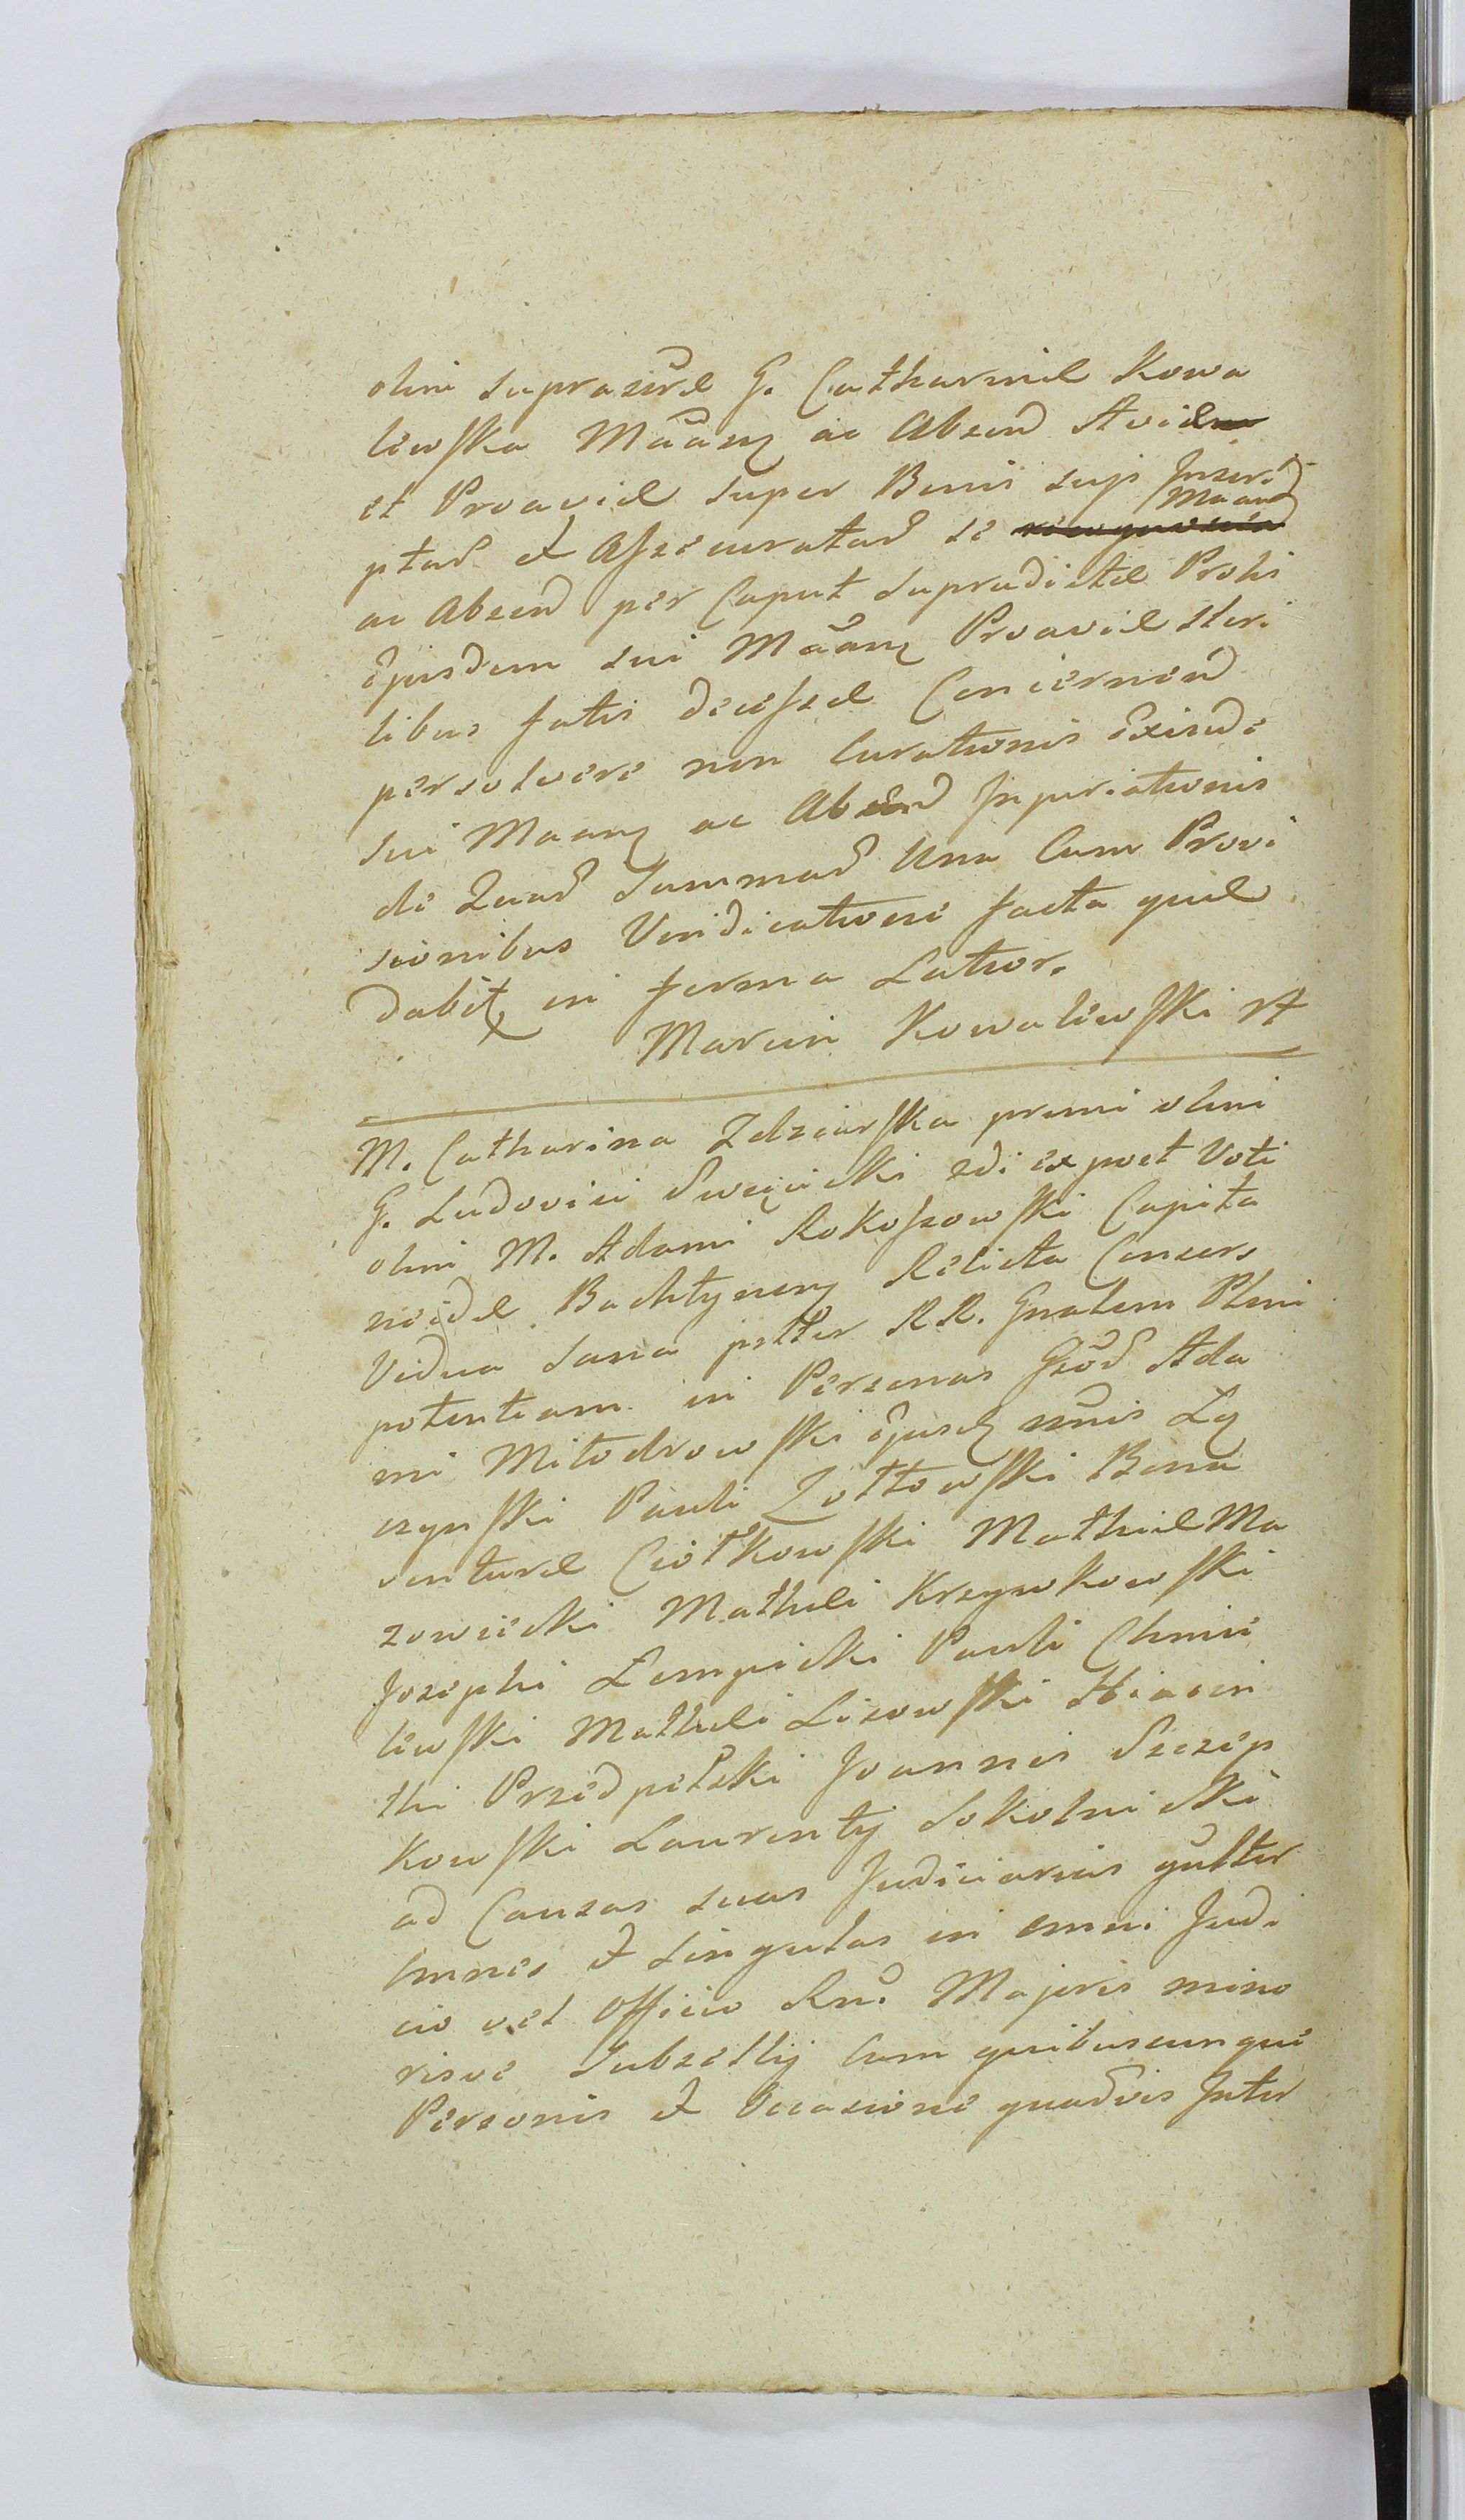 olim suprascrae G. Catharinae Kowa
lewska Maanz ac Absend Aviae
et Proaviae super Bonis sup Inscri
ptas et Assecuratas se Maand
ac Absend per Caput supradictae Prolis
ejusdem sui Maanz Proaviae Steri
libus fatis decessae Concernend
persolvere non Curationis exinde
sui Maanz ac Absend Injuriationis
de Quas Summas Una Cum Provi
sionibus Vindicatione facta quae
dabit in forma Latior.
Marcin Kowalewski
M. Catharina Zdziarska primi olim
G. Ludovici Swęcicki 2di expost Voti
olim M. Adami Rokossowski Capita
neidae Bachtynen Relicta Consors
Vidua Sana pstter RR. Gnalem Pleni
potentiam in Personas Gsod Ada
mi Milodrowski ejusd nnis Łą
czynski Pauli Zołtowski Bona
venturae Ciołkowski Mathiae Ma
zowiecki Mathei Krzywkowski
Josephi Łempicki Pauli Chmie
lewski Mathei Lisowski Hiacin
thi Przedpełski Joannis Szczep
kowski Laurenty Sokolnicki
ad Causas suas Judiciarias gultter
Omnes et Singulas in omni Judi
cio vel Officio Rni Majoris mino
risve Subsellij Cum quibuscunque
Personis et Occasione quadvis Inter